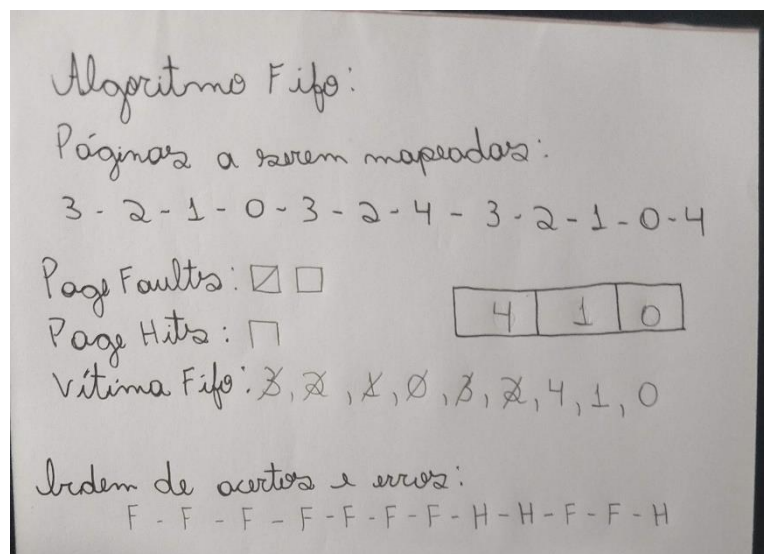 Algoritmo Fifo:
Páginas a serem mapeadas:
3 - 2 - 1 - 0 - 3 - 2 - 4 - 3 - 2 - 1 - 0 - 4
Page Faults:
4 1 0
Page Hits:
Vítima Fifo: 3, 2, 1, 0, 3, 2, 4, 1, 0
Ordem de acertos e erros:
F - F - F - F - F - F - F - H - H - F - F - H